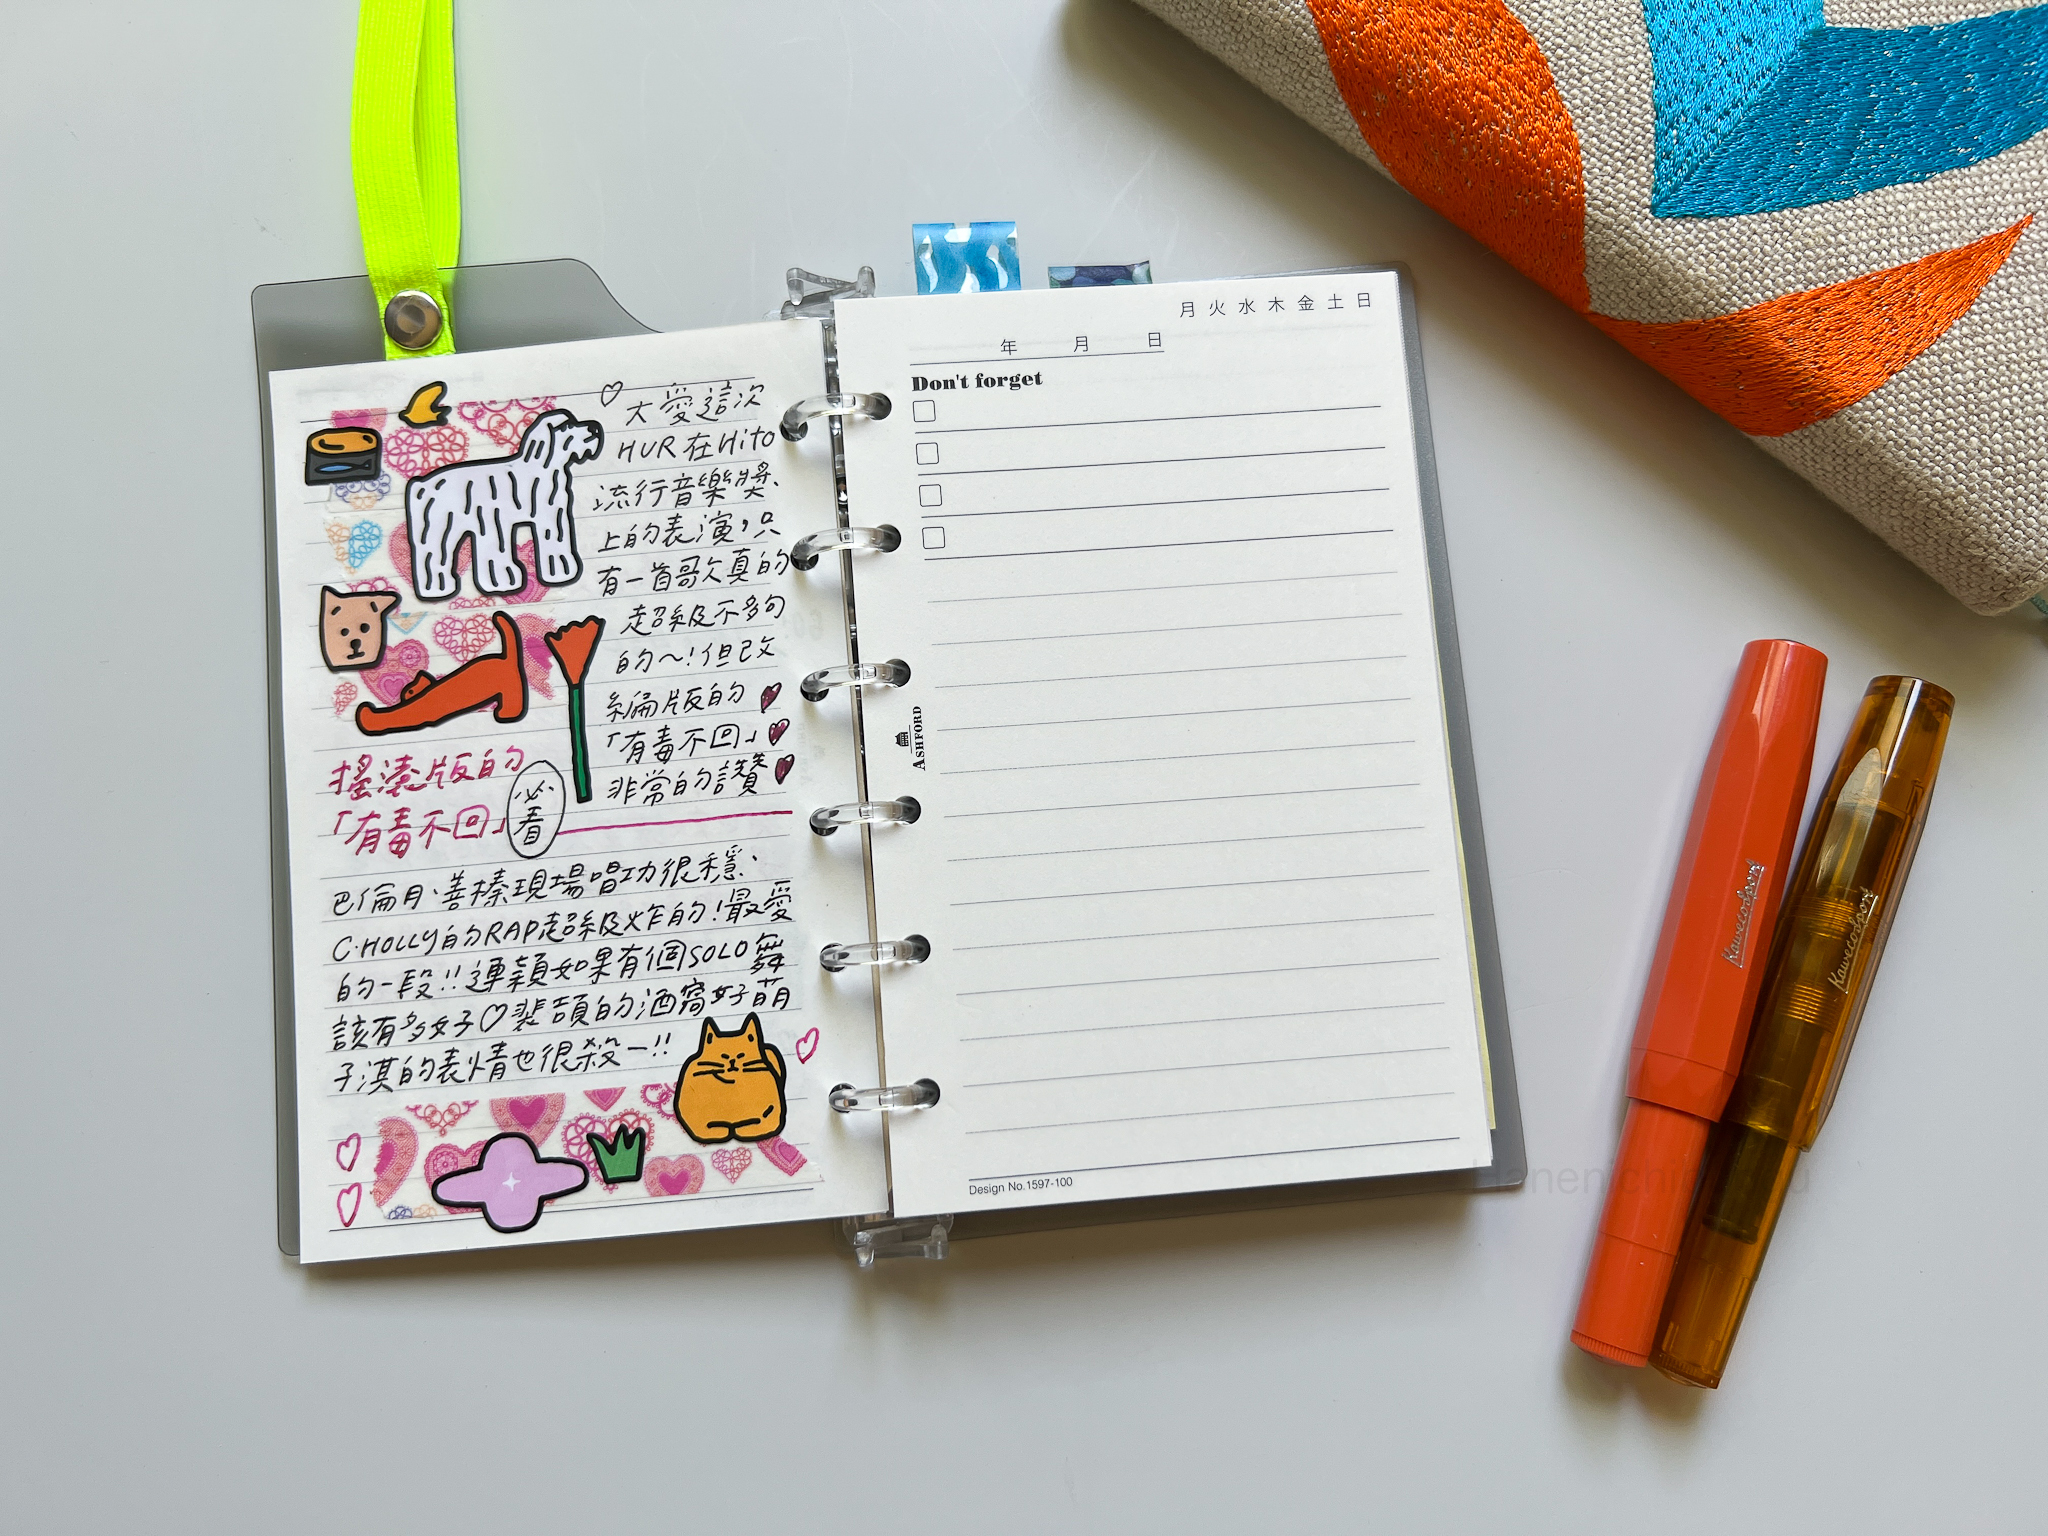 ♡ 大愛這次
HUR在Hito
流行音樂獎
上的表演，只
有一首歌真的
超級不多句
的～！但改
編版的
「有毒不回」
非常的讚
搖滾版的
「有毒不回」
必看
巴倫月、善榛現場唱功很穩、
C.HOLLY的RAP超級炸的！最愛
的一段!!連穎如果有個SOLO舞
該有多好♡裴頡的酒窩好萌
子淇的表情也很殺一!!
月 火 水 木 金 土 日
年 月 日
Don't forget
ASHFORD
Design No.1597-100
Kaweco Sport
Kaweco Sport